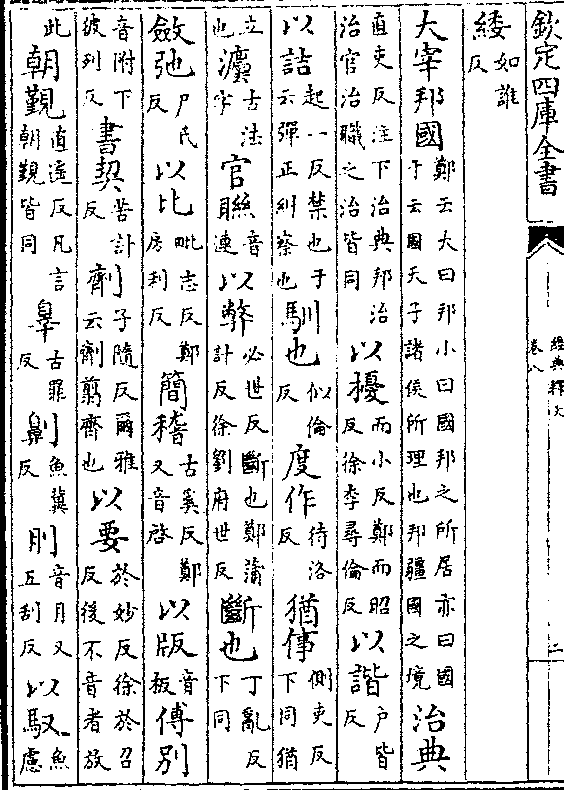 欽定四庫全書
經典釋文
卷八
二
緌如誰反
大宰邦國鄭云大曰邦小曰國邦之所居亦曰國干云國天子諸侯所理也邦疆國之境治典
直吏反注下治典邦治治官治職之治皆同以擾而小反鄭而昭反徐李尋倫反以諧戶皆反
以詰起一反禁也干云彈正糾察也馴也似倫反度作待洛反猶倳側吏反下同猶
立也灋古法字官聯音連以弊必世反斷也鄭蒲計反徐劉府世反斷也丁亂反下同
斂弛尸氏反以比毗志反鄭房利反簡稽古奚反鄭又音啓以版音板傅別
音附下彼列反書契苦計反劑子隨反爾雅云劑翦齊也以要於妙反徐於召反後不音者放
此朝覲直遥反凡言朝覲皆同辠古罪反劓魚冀反刖音月又五刮反以馭魚慮